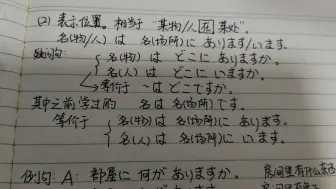 (2) 表示位置。相当于 "某物/人在某处"。
名(物/人) は 名(场所) に あります/います.
疑问句: { 名(物) は どこに ありますか.
名(人) は どこに いますか.
→等价于 ~は どこですか.
其中之前学过的 名は名(场所)です.
等价于 { 名(物) は 名(场所) に あります.
名(人) は 名(场所) に います.
例问: A: 部屋に 何が ありますか. 房间里有什么东西